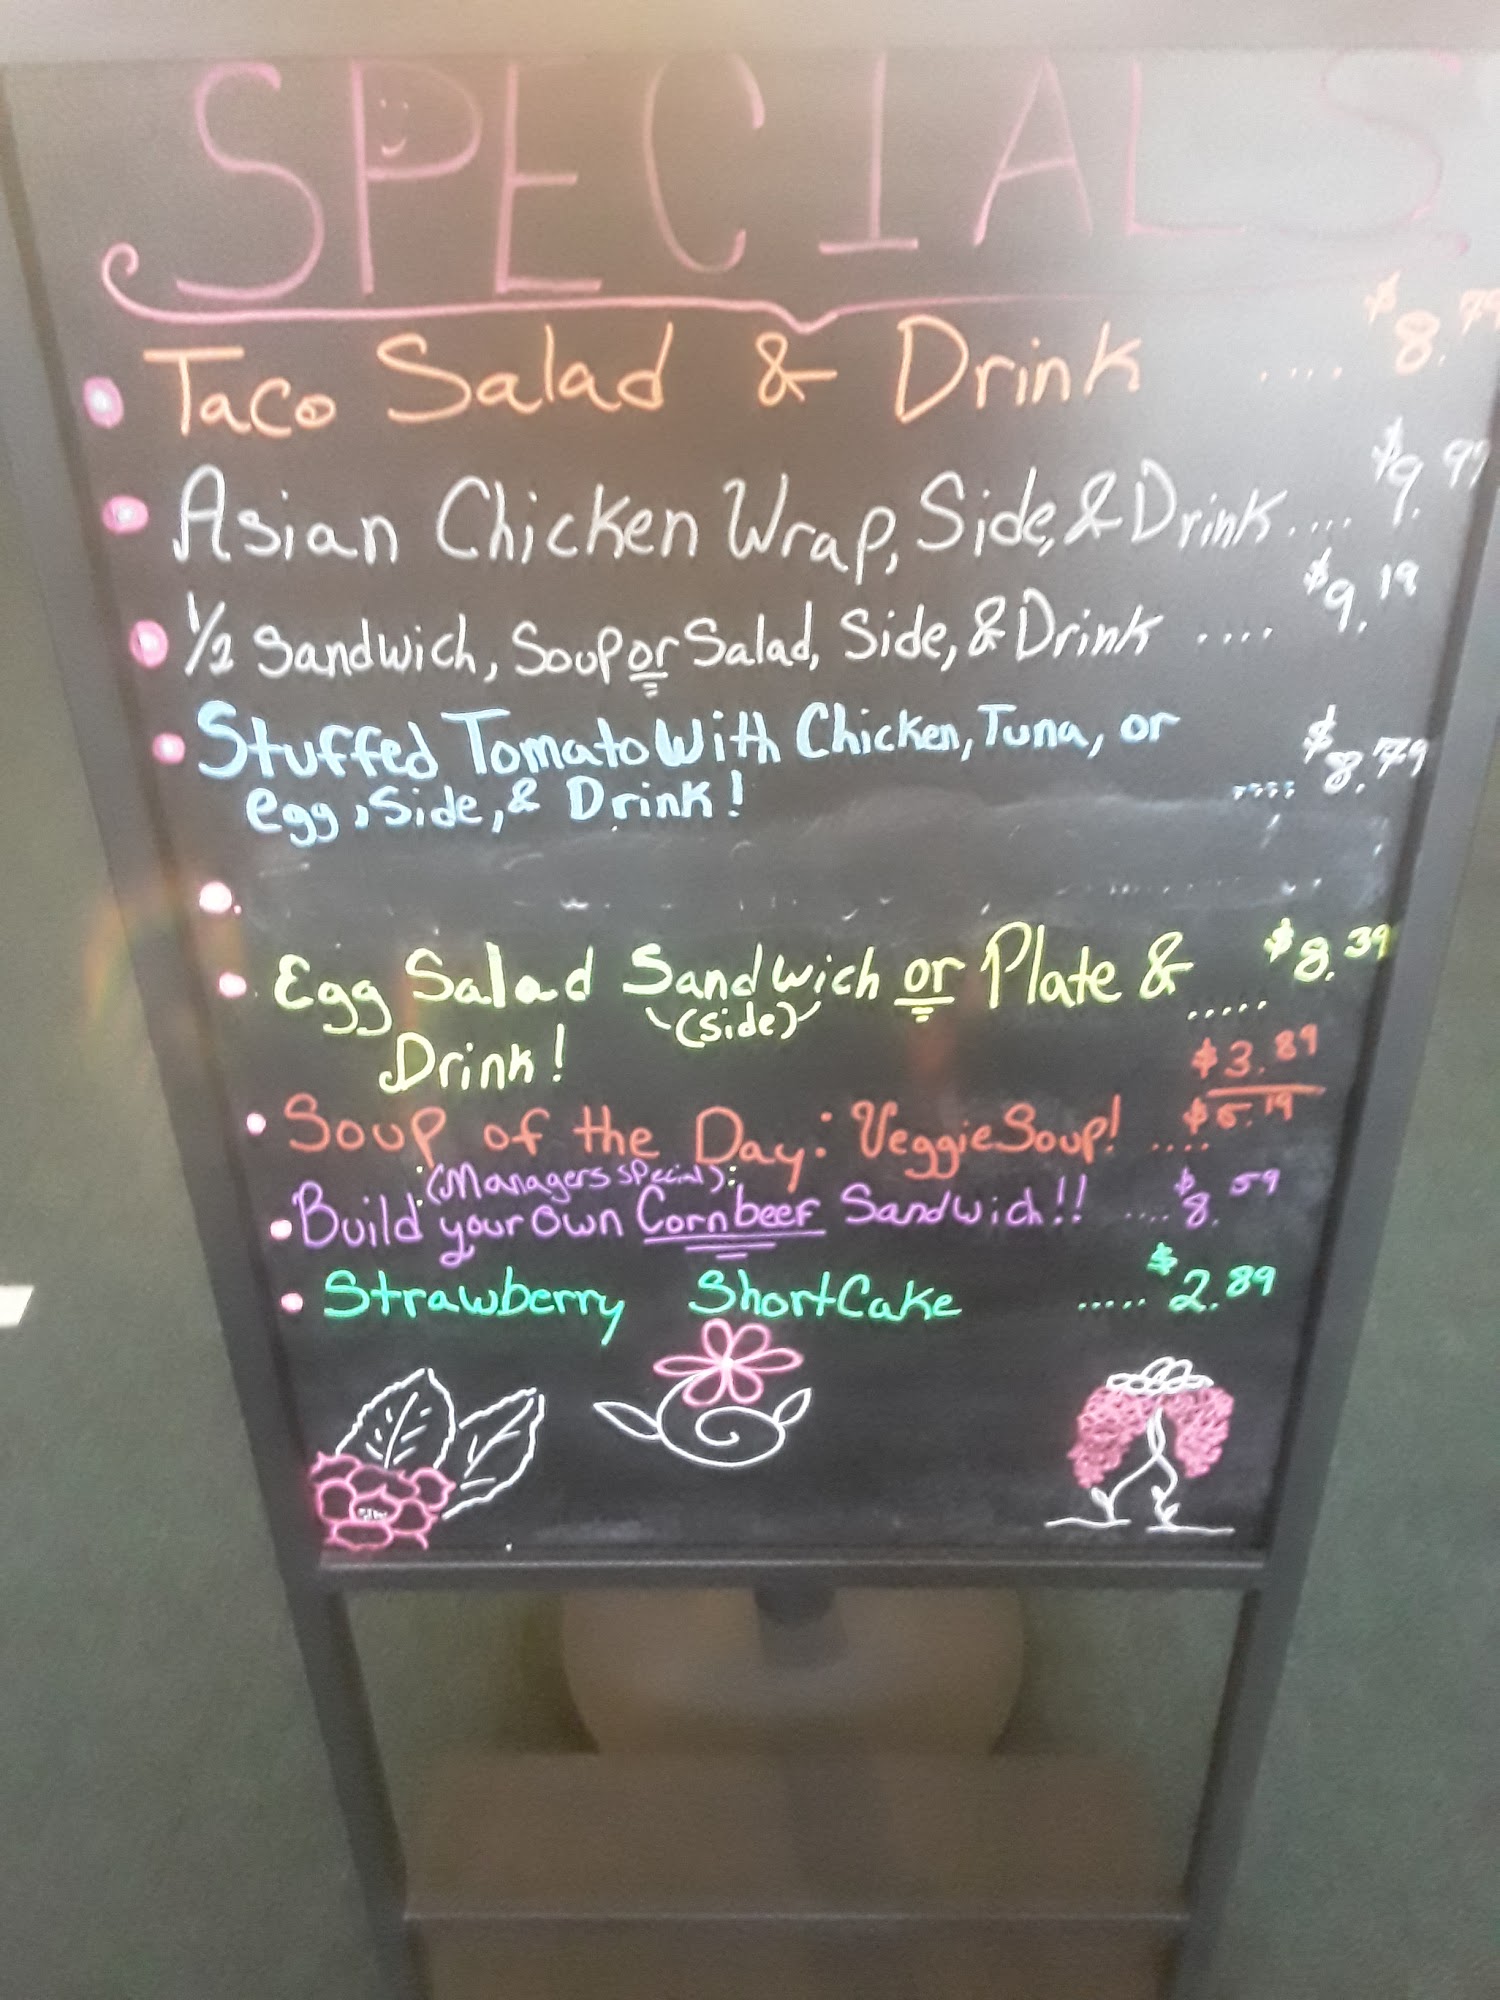 SPECIALS
• Taco Salad & Drink .... $8.79
• Asian Chicken Wrap, Side, & Drink.... $9.99
• 1/2 Sandwich, Soup or Salad, Side, & Drink .... $9.19
• Stuffed Tomato With Chicken, Tuna, or
egg, Side, & Drink! .... $8.79
• Egg Salad Sandwich or Plate & ..... $8.39
(Side)
Drink!
$3.89
• Soup of the Day: Veggie Soup! .... $5.19
(Managers special)
• Build your own Cornbeef Sandwich!! .... $8.59
• Strawberry ShortCake ..... $2.89